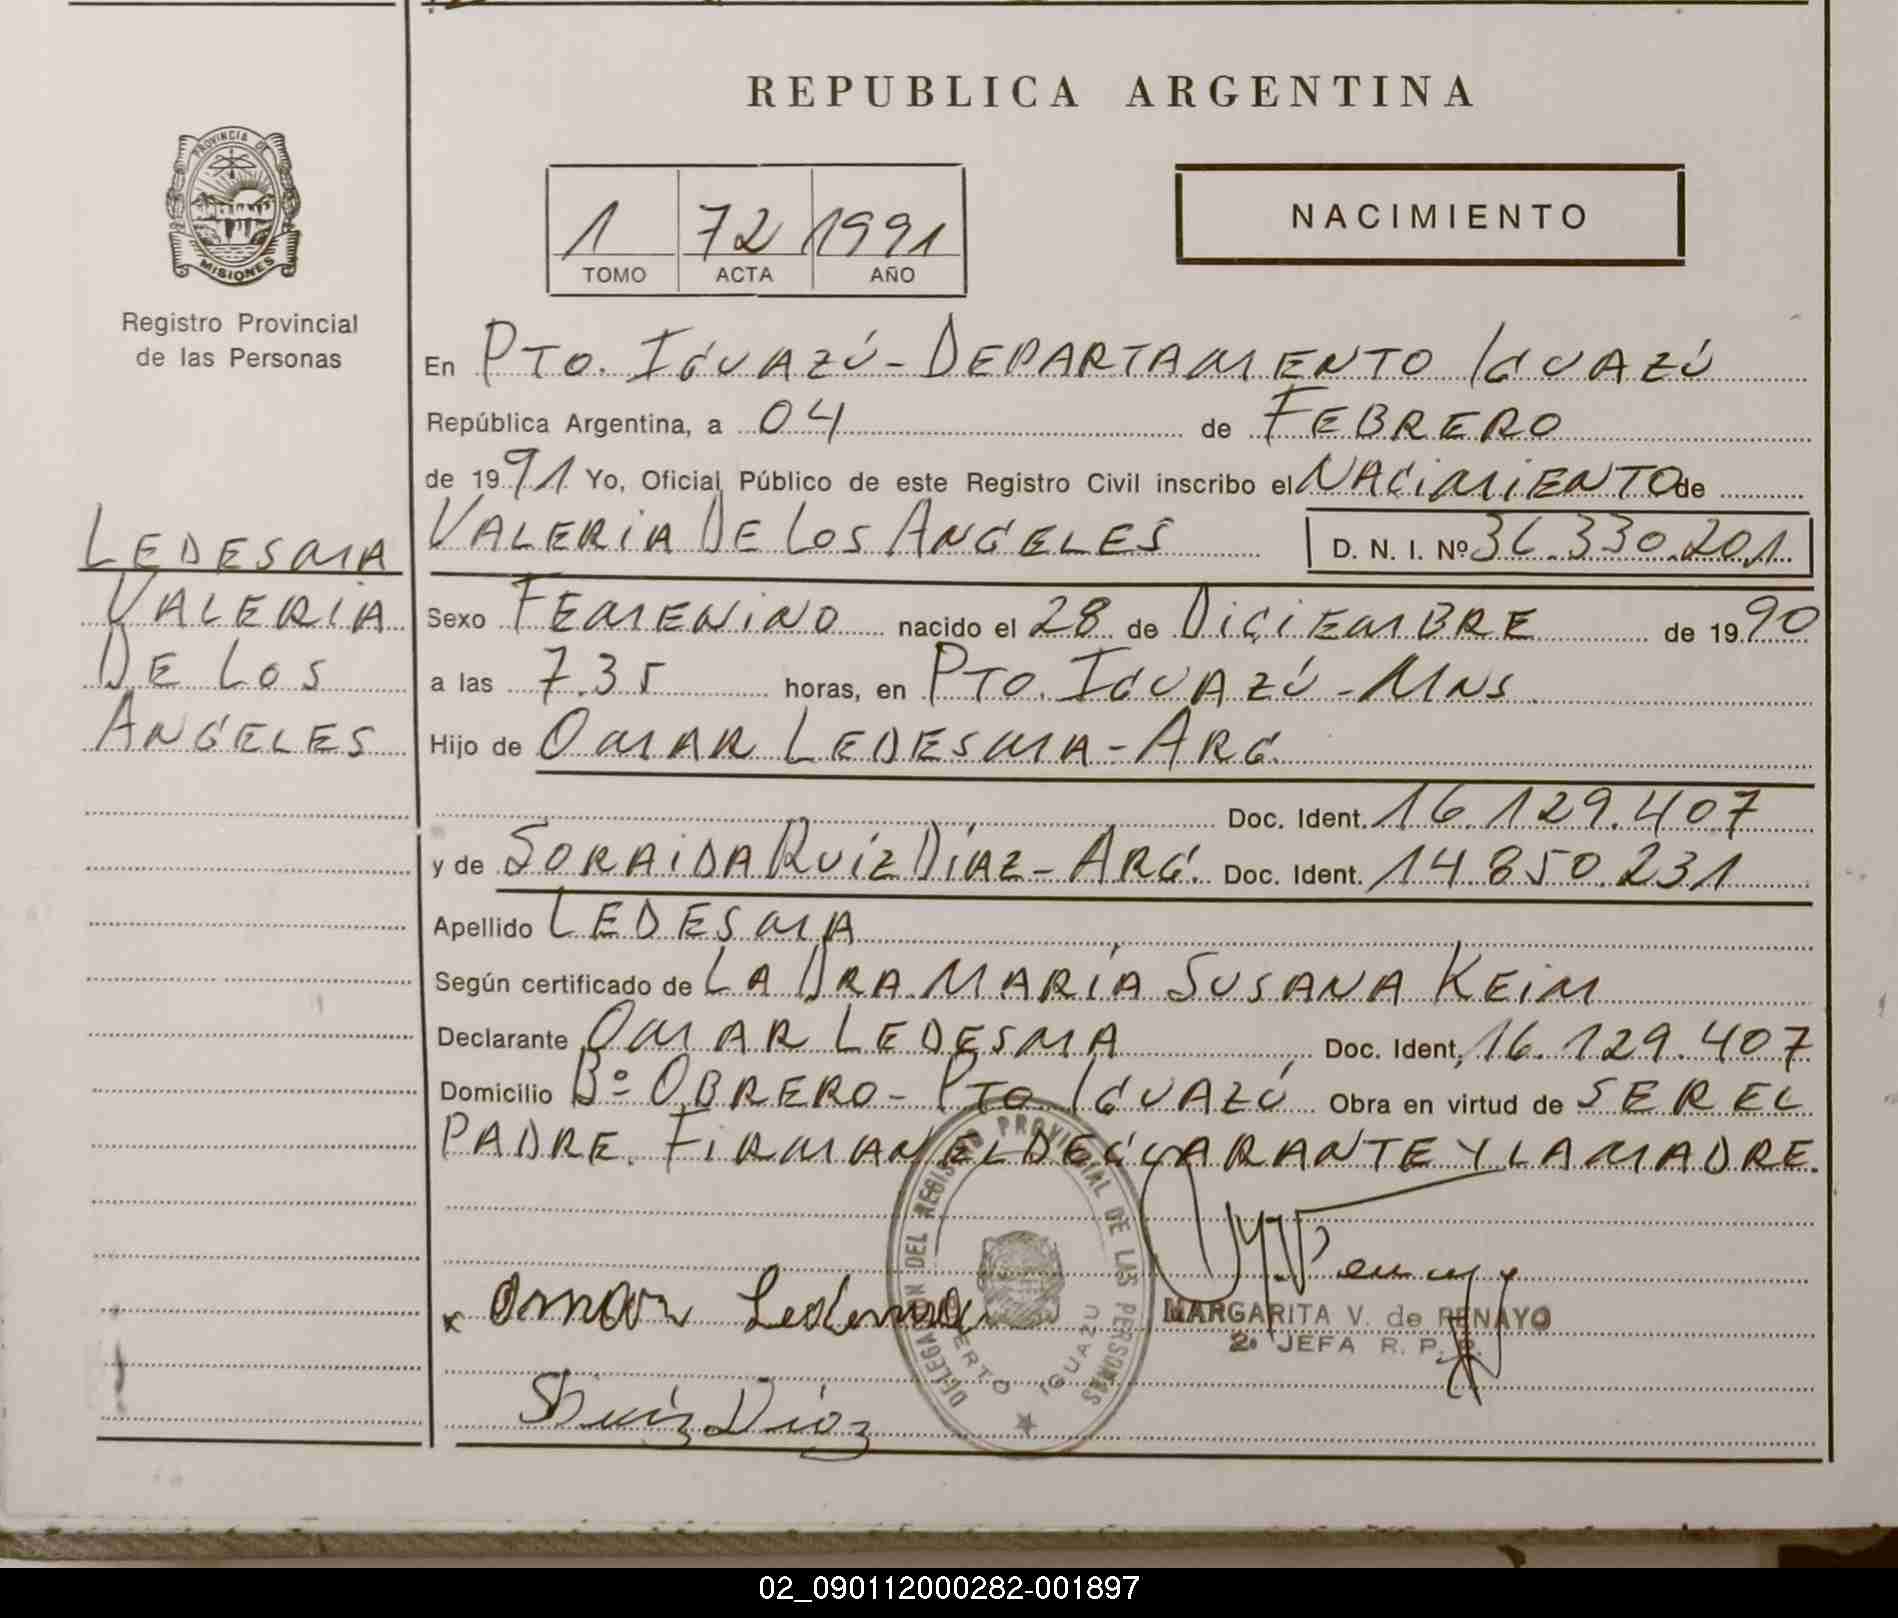 REPUBLICA ARGENTINA
PROVINCIA DE
MISIONES
Registro Provincial
de las Personas
1 72 1991
TOMO ACTA AÑO
NACIMIENTO
En PTO. IGUAZÚ - DEPARTAMENTO IGUAZÚ
República Argentina, a 04 de FEBRERO
de 1991 Yo, Oficial Público de este Registro Civil inscribo el NACIMIENTO de
VALERIA DE LOS ANGELES D. N. I. Nº 36.330.201
LEDESMA
VALERIA
DE LOS
ANGELES
Sexo FEMENINO nacido el 28 de DICIEMBRE de 1990
a las 7.35 horas, en PTO. IGUAZÚ - MNS
Hijo de OMAR LEDESMA - ARG.
Doc. Ident. 16.129.407
y de SORAIDA RUIZ DÍAZ - ARG. Doc. Ident. 14.850.231
Apellido LEDESMA
Según certificado de LA DRA. MARÍA SUSANA KEIM
Declarante OMAR LEDESMA Doc. Ident. 16.129.407
Domicilio Bº OBRERO - PTO IGUAZÚ Obra en virtud de SER EL
PADRE. FIRMAN EL DECLARANTE Y LA MADRE.
DELEGACION DEL REGISTRO PROVINCIAL DE LAS PERSONAS
PUERTO IGUAZU
x Omar Ledesma
MARGARITA V. de PENAYO
2ª JEFA R. P. P.
S Ruiz Diaz
02_090112000282-001897